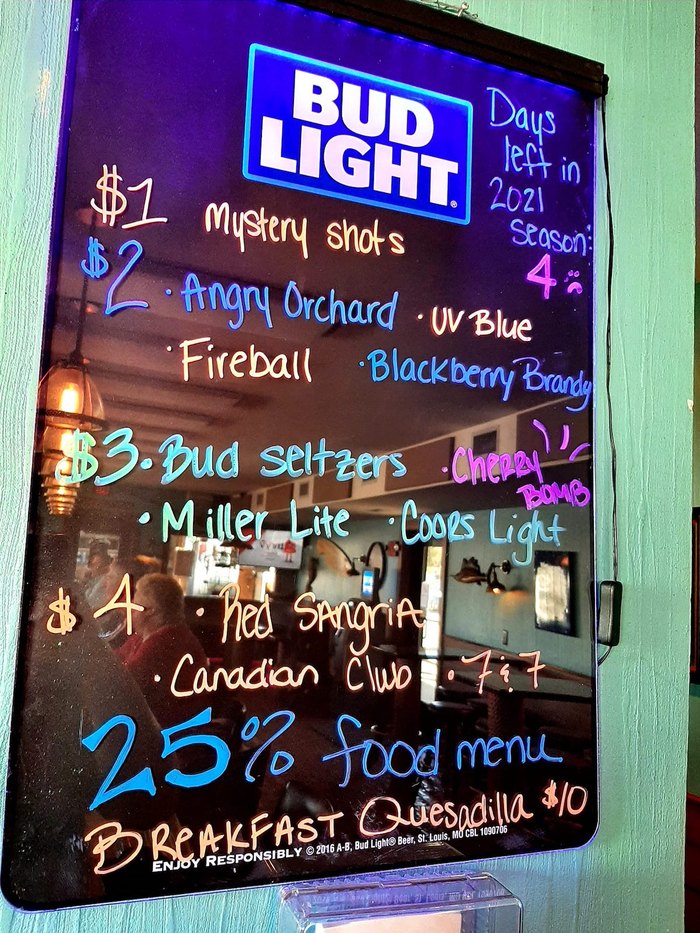 BUD
LIGHT®
Days
left in
2021
season:
4
$1 Mystery shots
$2 · Angry Orchard · UV Blue
· Fireball · Blackberry Brandy
$3 · Bud Seltzers · Cherry
BOMB
· Miller Lite · Coors Light
$4 · Red Sangria
· Canadian Club · 7 & 7
25% food menu
Breakfast Quesadilla $10
Enjoy Responsibly © 2016 A-B, Bud Light® Beer, St. Louis, MO CBL 1090706